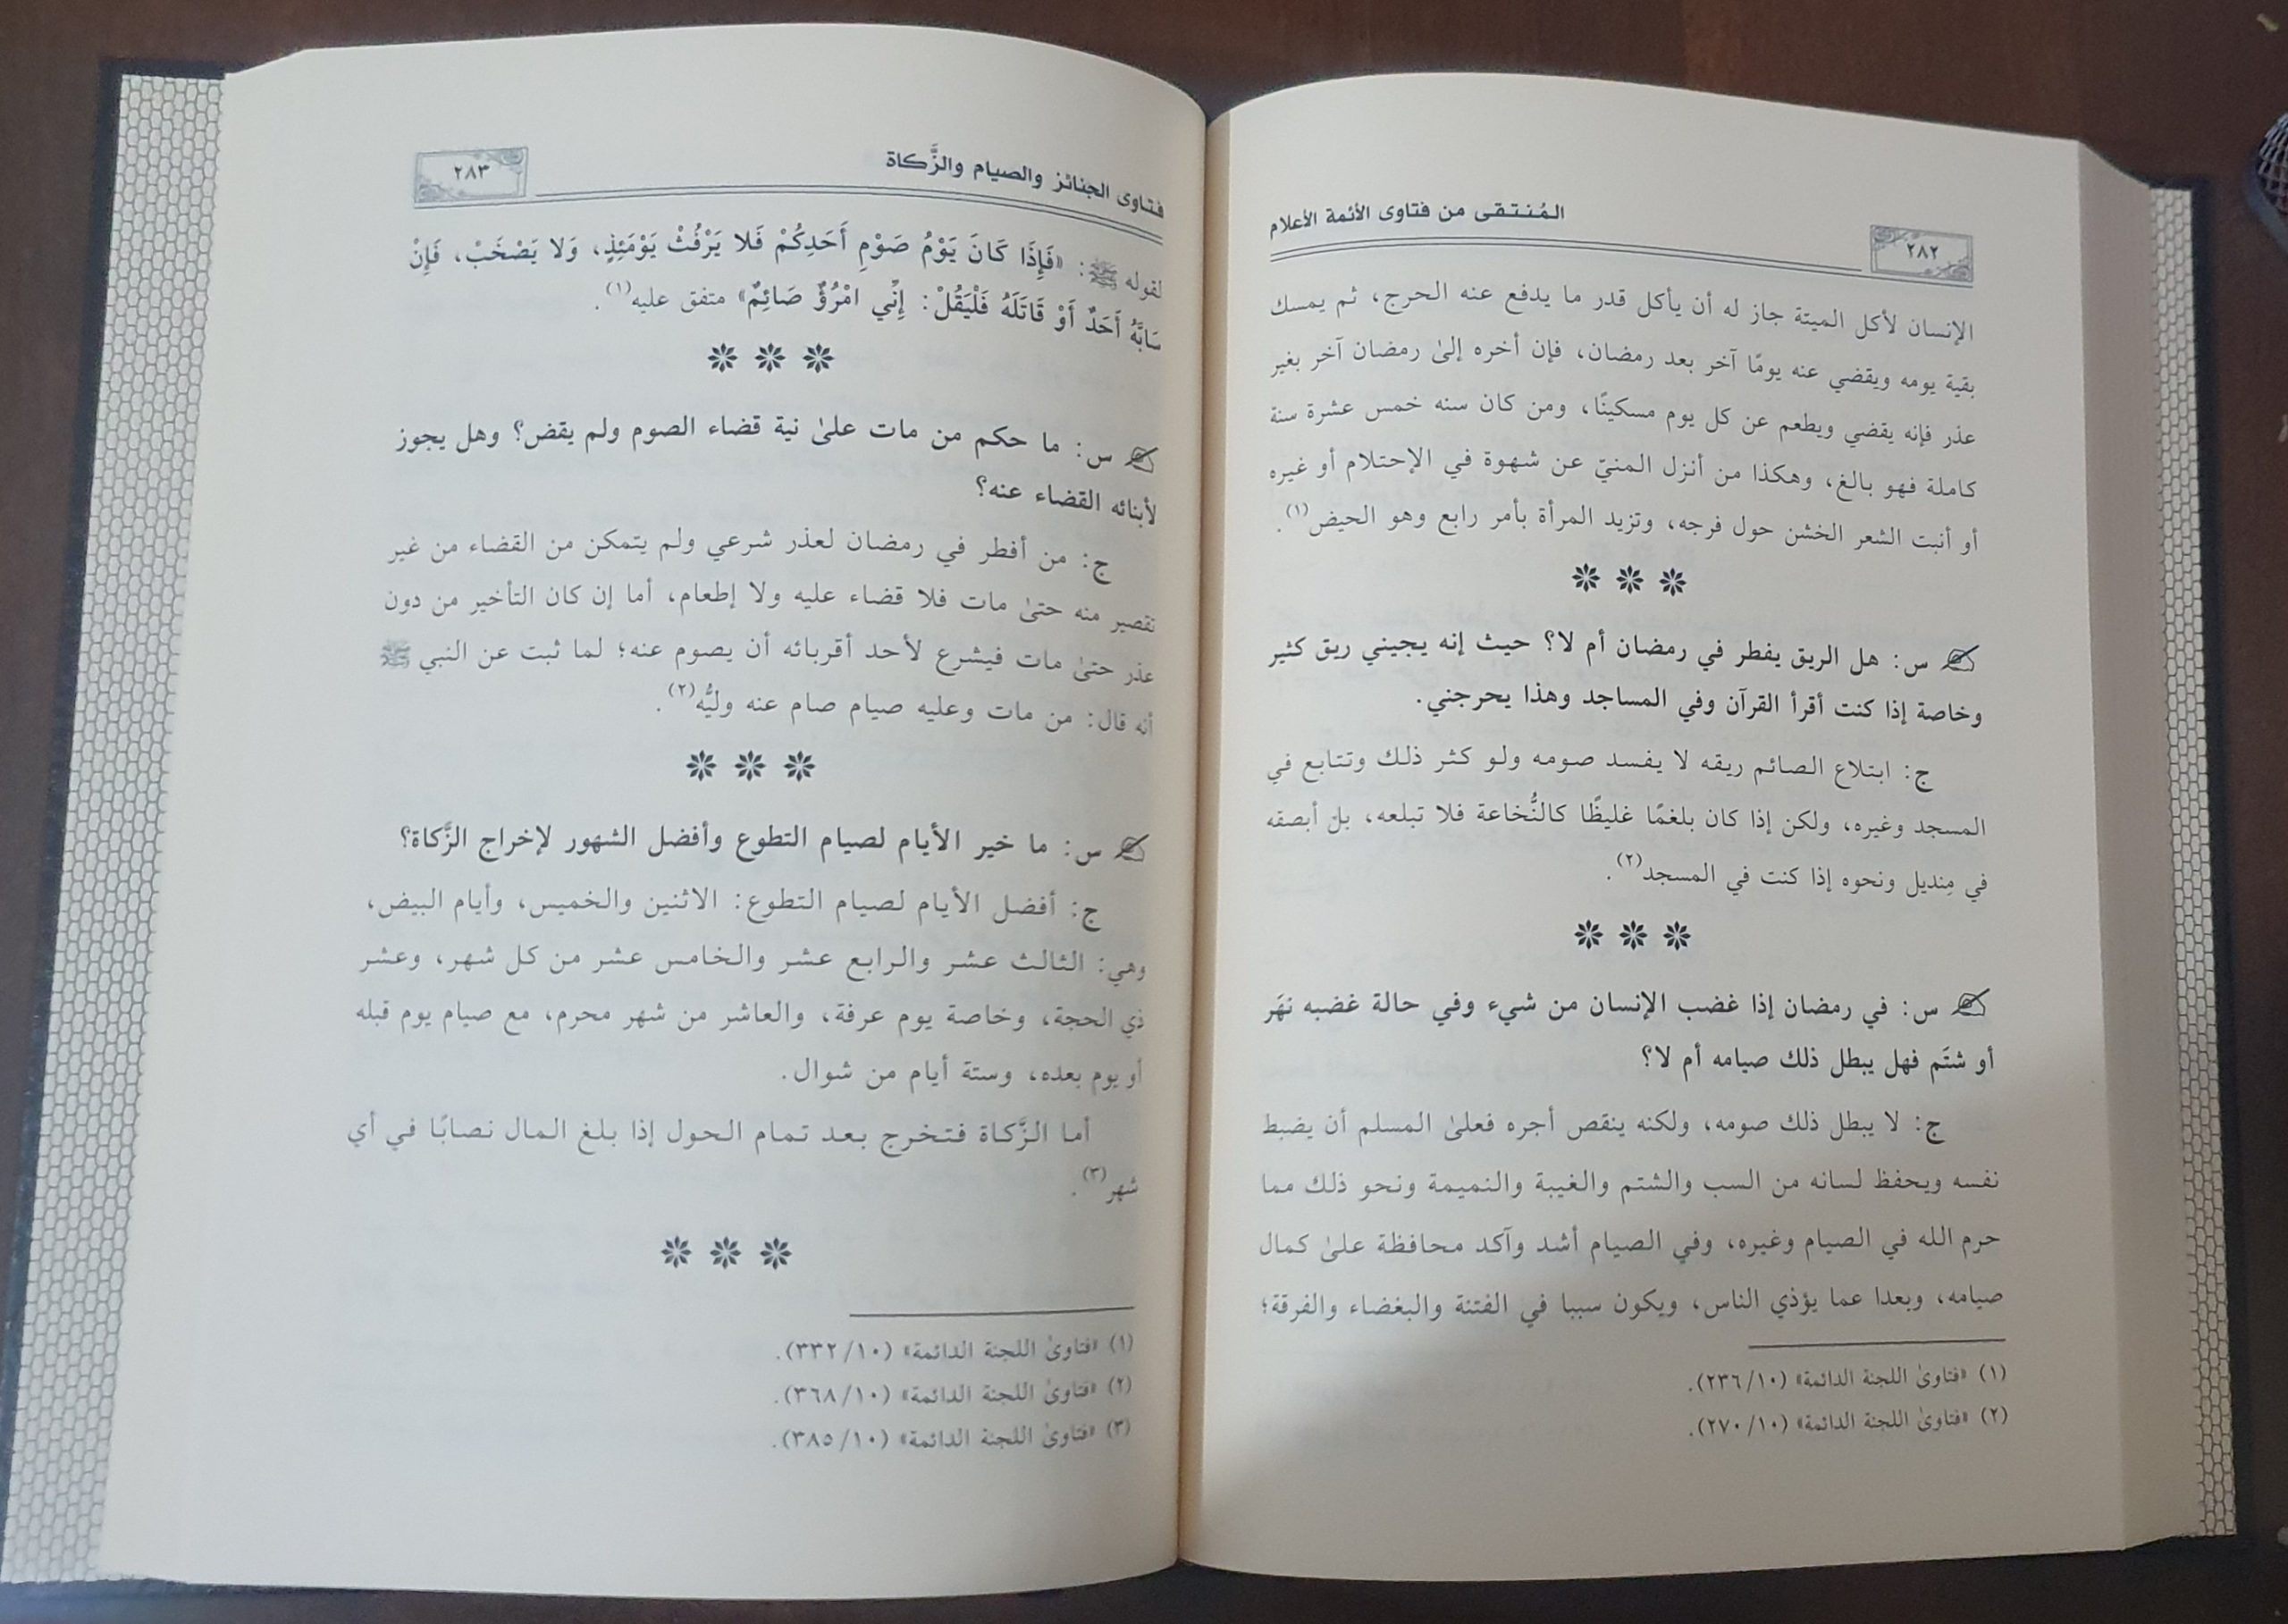 المُنتقى من فتاوى الأئمة الأعلام
٢٨٢
الإنسان لأكل الميتة جاز له أن يأكل قدر ما يدفع عنه الحرج، ثم يمسك
بقية يومه ويقضي عنه يومًا آخر بعد رمضان، فإن أخره إلىٰ رمضان آخر بغير
عذر فإنه يقضي ويطعم عن كل يوم مسكينًا، ومن كان سنه خمس عشرة سنة
كاملة فهو بالغ، وهكذا من أنزل المنيّ عن شهوة في الإحتلام أو غيره
أو أنبت الشعر الخشن حول فرجه، وتزيد المرأة بأمر رابع وهو الحيض(١).
س: هل الريق يفطر في رمضان أم لا؟ حيث إنه يجيني ريق كثير
وخاصة إذا كنت أقرأ القرآن وفي المساجد وهذا يحرجني.
ج: ابتلاع الصائم ريقه لا يفسد صومه ولو كثر ذلك وتتابع في
المسجد وغيره، ولكن إذا كان بلغمًا غليظًا كالنُّخاعة فلا تبلعه، بل أبصقه
في مِنديل ونحوه إذا كنت في المسجد(٢).
س: في رمضان إذا غضب الإنسان من شيء وفي حالة غضبه نهَر
أو شتَم فهل يبطل ذلك صيامه أم لا؟
ج: لا يبطل ذلك صومه، ولكنه ينقص أجره فعلىٰ المسلم أن يضبط
نفسه ويحفظ لسانه من السب والشتم والغيبة والنميمة ونحو ذلك مما
حرم الله في الصيام وغيره، وفي الصيام أشد وآكد محافظة علىٰ كمال
صيامه، وبعدا عما يؤذي الناس، ويكون سببا في الفتنة والبغضاء والفرقة؛
(١) «فتاوىٰ اللجنة الدائمة» (١٠/٢٣٦).
(٢) «فتاوىٰ اللجنة الدائمة» (١٠/٢٧٠).
فتاوى الجنائز والصيام والزَّكاة
٢٨٣
لقوله ﷺ: «فَإِذَا كَانَ يَوْمُ صَوْمِ أَحَدِكُمْ فَلا يَرْفُثْ يَوْمَئِذٍ، وَلا يَصْخَبْ، فَإِنْ
سَابَّهُ أَحَدٌ أَوْ قَاتَلَهُ فَلْيَقُلْ: إِنِّي امْرُؤٌ صَائِمٌ» متفق عليه(١).
س: ما حكم من مات علىٰ نية قضاء الصوم ولم يقض؟ وهل يجوز
لأبنائه القضاء عنه؟
ج: من أفطر في رمضان لعذر شرعي ولم يتمكن من القضاء من غير
تقصير منه حتىٰ مات فلا قضاء عليه ولا إطعام، أما إن كان التأخير من دون
عذر حتىٰ مات فيشرع لأحد أقربائه أن يصوم عنه؛ لما ثبت عن النبي ﷺ
أنه قال: من مات وعليه صيام صام عنه وليُّه(٢).
س: ما خير الأيام لصيام التطوع وأفضل الشهور لإخراج الزَّكاة؟
ج: أفضل الأيام لصيام التطوع: الاثنين والخميس، وأيام البيض،
وهي: الثالث عشر والرابع عشر والخامس عشر من كل شهر، وعشر
ذي الحجة، وخاصة يوم عرفة، والعاشر من شهر محرم، مع صيام يوم قبله
أو يوم بعده، وستة أيام من شوال.
أما الزَّكاة فتخرج بعد تمام الحول إذا بلغ المال نصابًا في أي
شهر(٣).
(١) «فتاوىٰ اللجنة الدائمة» (١٠/٣٣٢).
(٢) «فتاوىٰ اللجنة الدائمة» (١٠/٣٦٨).
(٣) «فتاوىٰ اللجنة الدائمة» (١٠/٣٨٥).